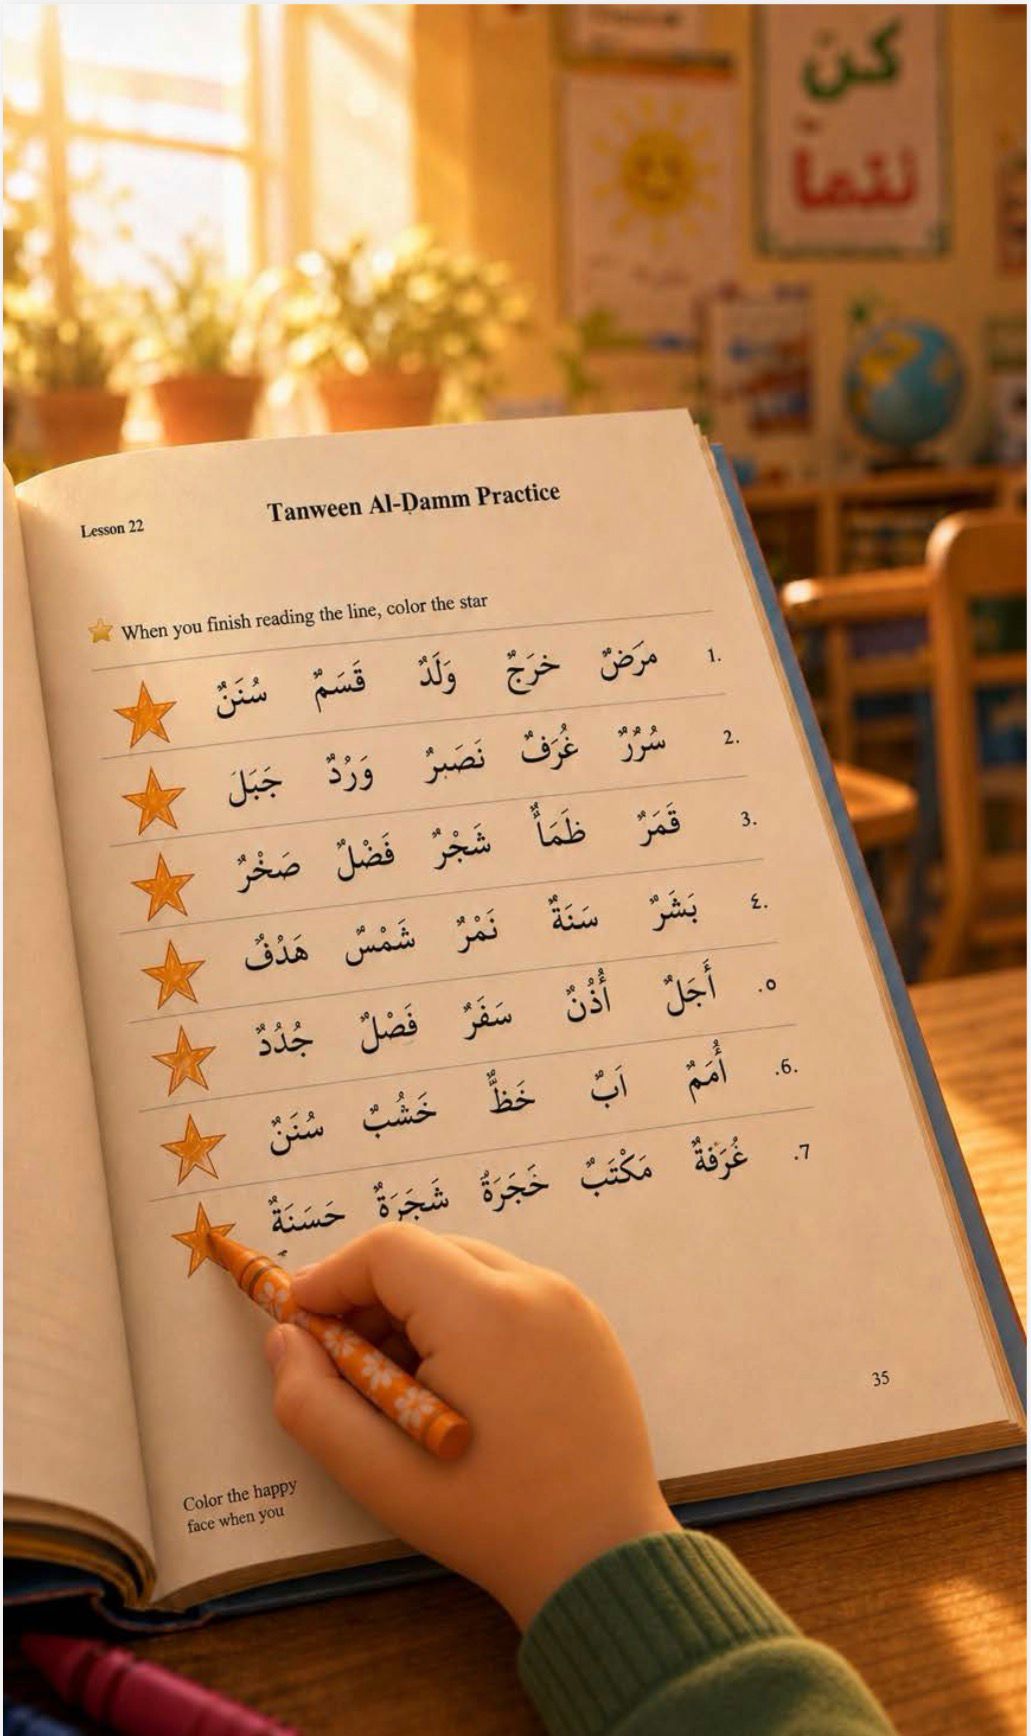 كن
نتمأ
Lesson 22
Tanween Al-Ḍamm Practice
When you finish reading the line, color the star
1. مرَضٌ خرَجٌ وَلَدٌ قَسَمٌ سُنَنٌ
2. سُرُرٌ غُرَفٌ نَصَبرٌ وَرُدٌ جَبَلَ
3. قَمَرٌ ظَمَأٌ شَجْرٌ فَضْلٌ صَخْرٌ
٤. بَشَرٌ سَنَةٌ نَمْرٌ شَمْسٌ هَدُفٌ
.٥ أَجَلٌ أُذُنٌ سَفَرٌ فَصْلٌ جُدُدٌ
.6. أُمَمٌ اَبٌ خَظٌّ خَشُبٌ سُنَنٌ
.7 غُرَفةٌ مَكْتَبٌ حَجَرَةٌ شَجَرَةٌ حَسَنَةٌ
35
Color the happy
face when you